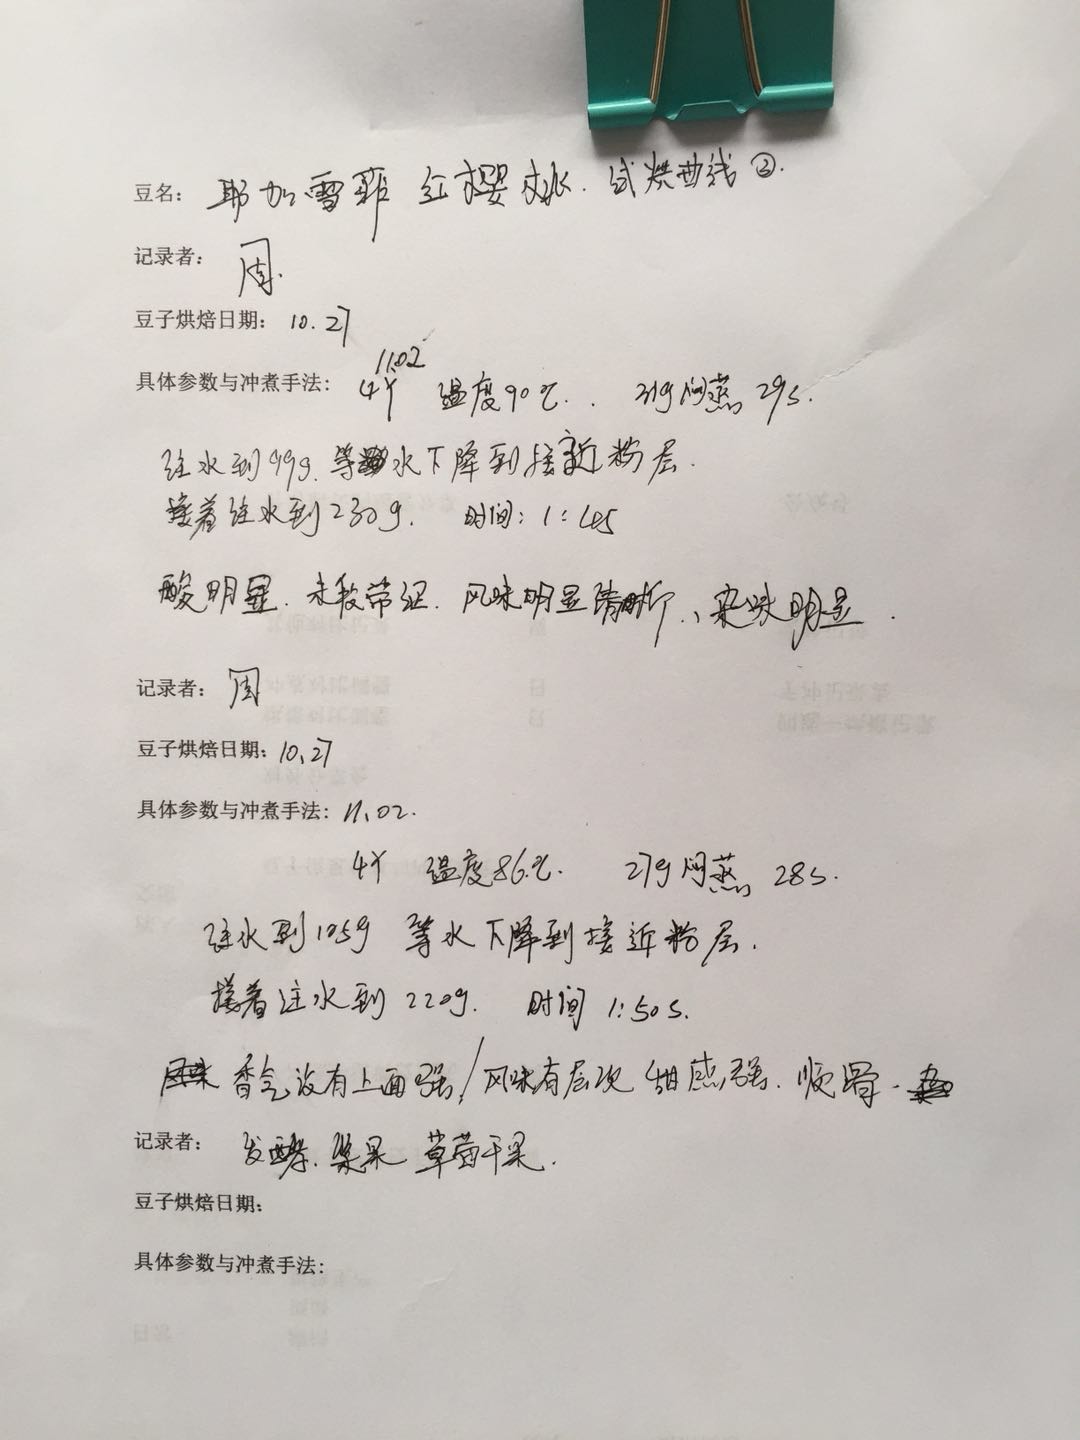 豆名： 耶加雪菲 红樱桃. 试烘曲线②.
记录者： 周.
豆子烘焙日期： 10.27
11.02
具体参数与冲煮手法： 4Y 温度90℃. . 31g闷蒸 29s.
注水到99g. 等水下降到接近粉层.
接着注水到230g. 时间：1：45
酸明显. 风味明显清晰、杂味明显.
记录者： 周
豆子烘焙日期： 10.27
具体参数与冲煮手法： 11.02.
4Y 温度86℃. 27g闷蒸 28s.
注水到105g 等水下降到接近粉层.
接着注水到220g. 时间 1:50s.
香气没有上面强/风味有层次 甜感强. 顺滑.
记录者： 发酵. 浆果 草莓干果.
豆子烘焙日期：
具体参数与冲煮手法：